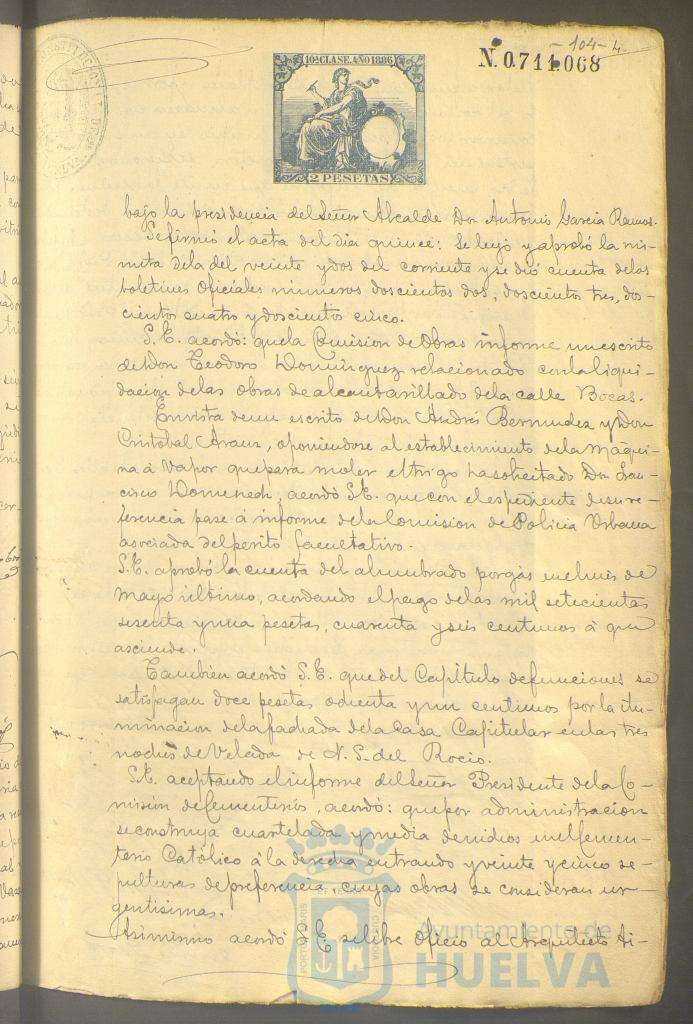 -104- 4
10ª CLASE. AÑO 1886
N. 0.711.068
2 PESETAS
bajo la presidencia del Señor Alcalde Dn Antonio Garcia Ramos.
Se firmó el acta del dia quince: Se leyó y aprobó la mi-
nuta dela del veinte y dos del corriente y se dió cuenta delos
boletines Oficiales números doscientos dos, doscientos tres, dos-
cientos cuatro y doscientos cinco.
S.E. acordó: quela Comision de Obras informe un escrito
de Don Teodoro Dominguez relacionado conla liqui-
dacion delas obras de alcantarillado dela calle Bocas.
En vista de un escrito de Don Andrés Bermudez y Don
Cristobal Arauz, oponiendose al establecimiento dela máqui-
na á vapor que para moler el trigo ha solicitado Dn Fran-
cisco Domenech, acordó S.E. que con el espediente de su re-
ferencia pase á informe dela Comision de Policia Urbana
asociada del perito facultativo.
S.E. aprobó la cuenta del alumbrado por gás en el mes de
Mayo último, acordando el pago delas mil setecientas
sesenta y una pesetas, cuarenta y seis centimos á que
asciende.
Tambien acordó S.E. que del Capítulo de funciones se
satisfagan doce pesetas ochenta y un centimos por la ilu-
minacion dela fachada dela Casa Capitular en las tres
noches de Velada de N. S. del Rocio.
S.E. aceptando el informe del Señor Presidente dela Co-
mision de Cementerios, acordó: que por administracion
se construya cuartelada y media de nidios en el Cemen-
terio Católico á la derecha entrando y veinte y cinco se-
pulturas de preferencia, cuyas obras se consideran ur-
gentisimas.
Asimismo acordó S.E. se libre Oficio al Arquitecto Ti-
Ayuntamiento de
HUELVA